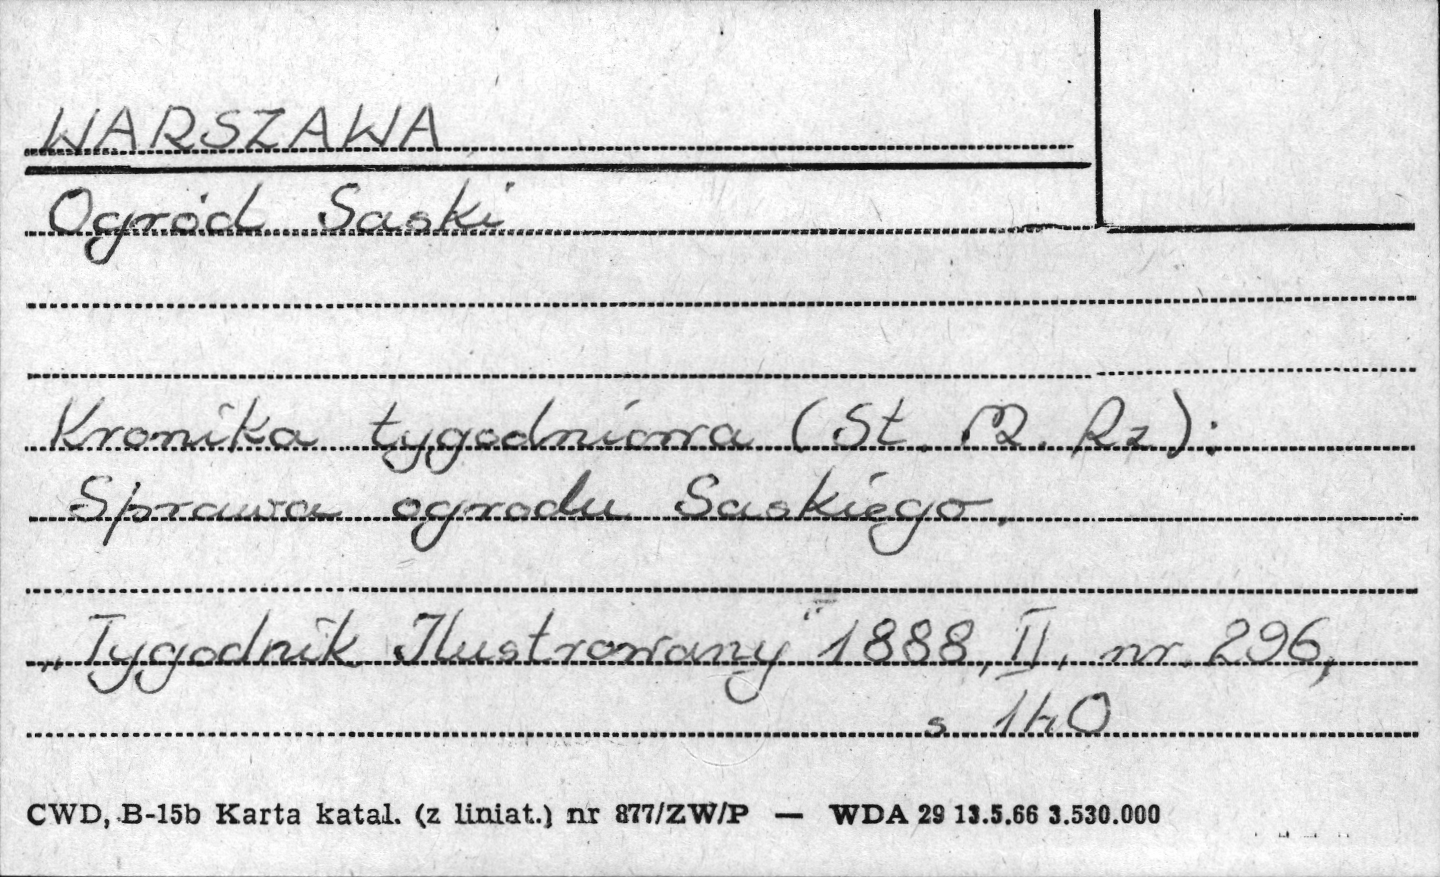 WARSZAWA
Ogród Saski
Kronika tygodniowa (St. M. Rz):
Sprawa ogrodu Saskiego.
„Tygodnik Ilustrowany" 1888, II, nr. 296,
s 140
CWD, B-15b Karta katal. (z liniat.) nr 877/ZW/P — WDA 29 13.5.66 3.530.000